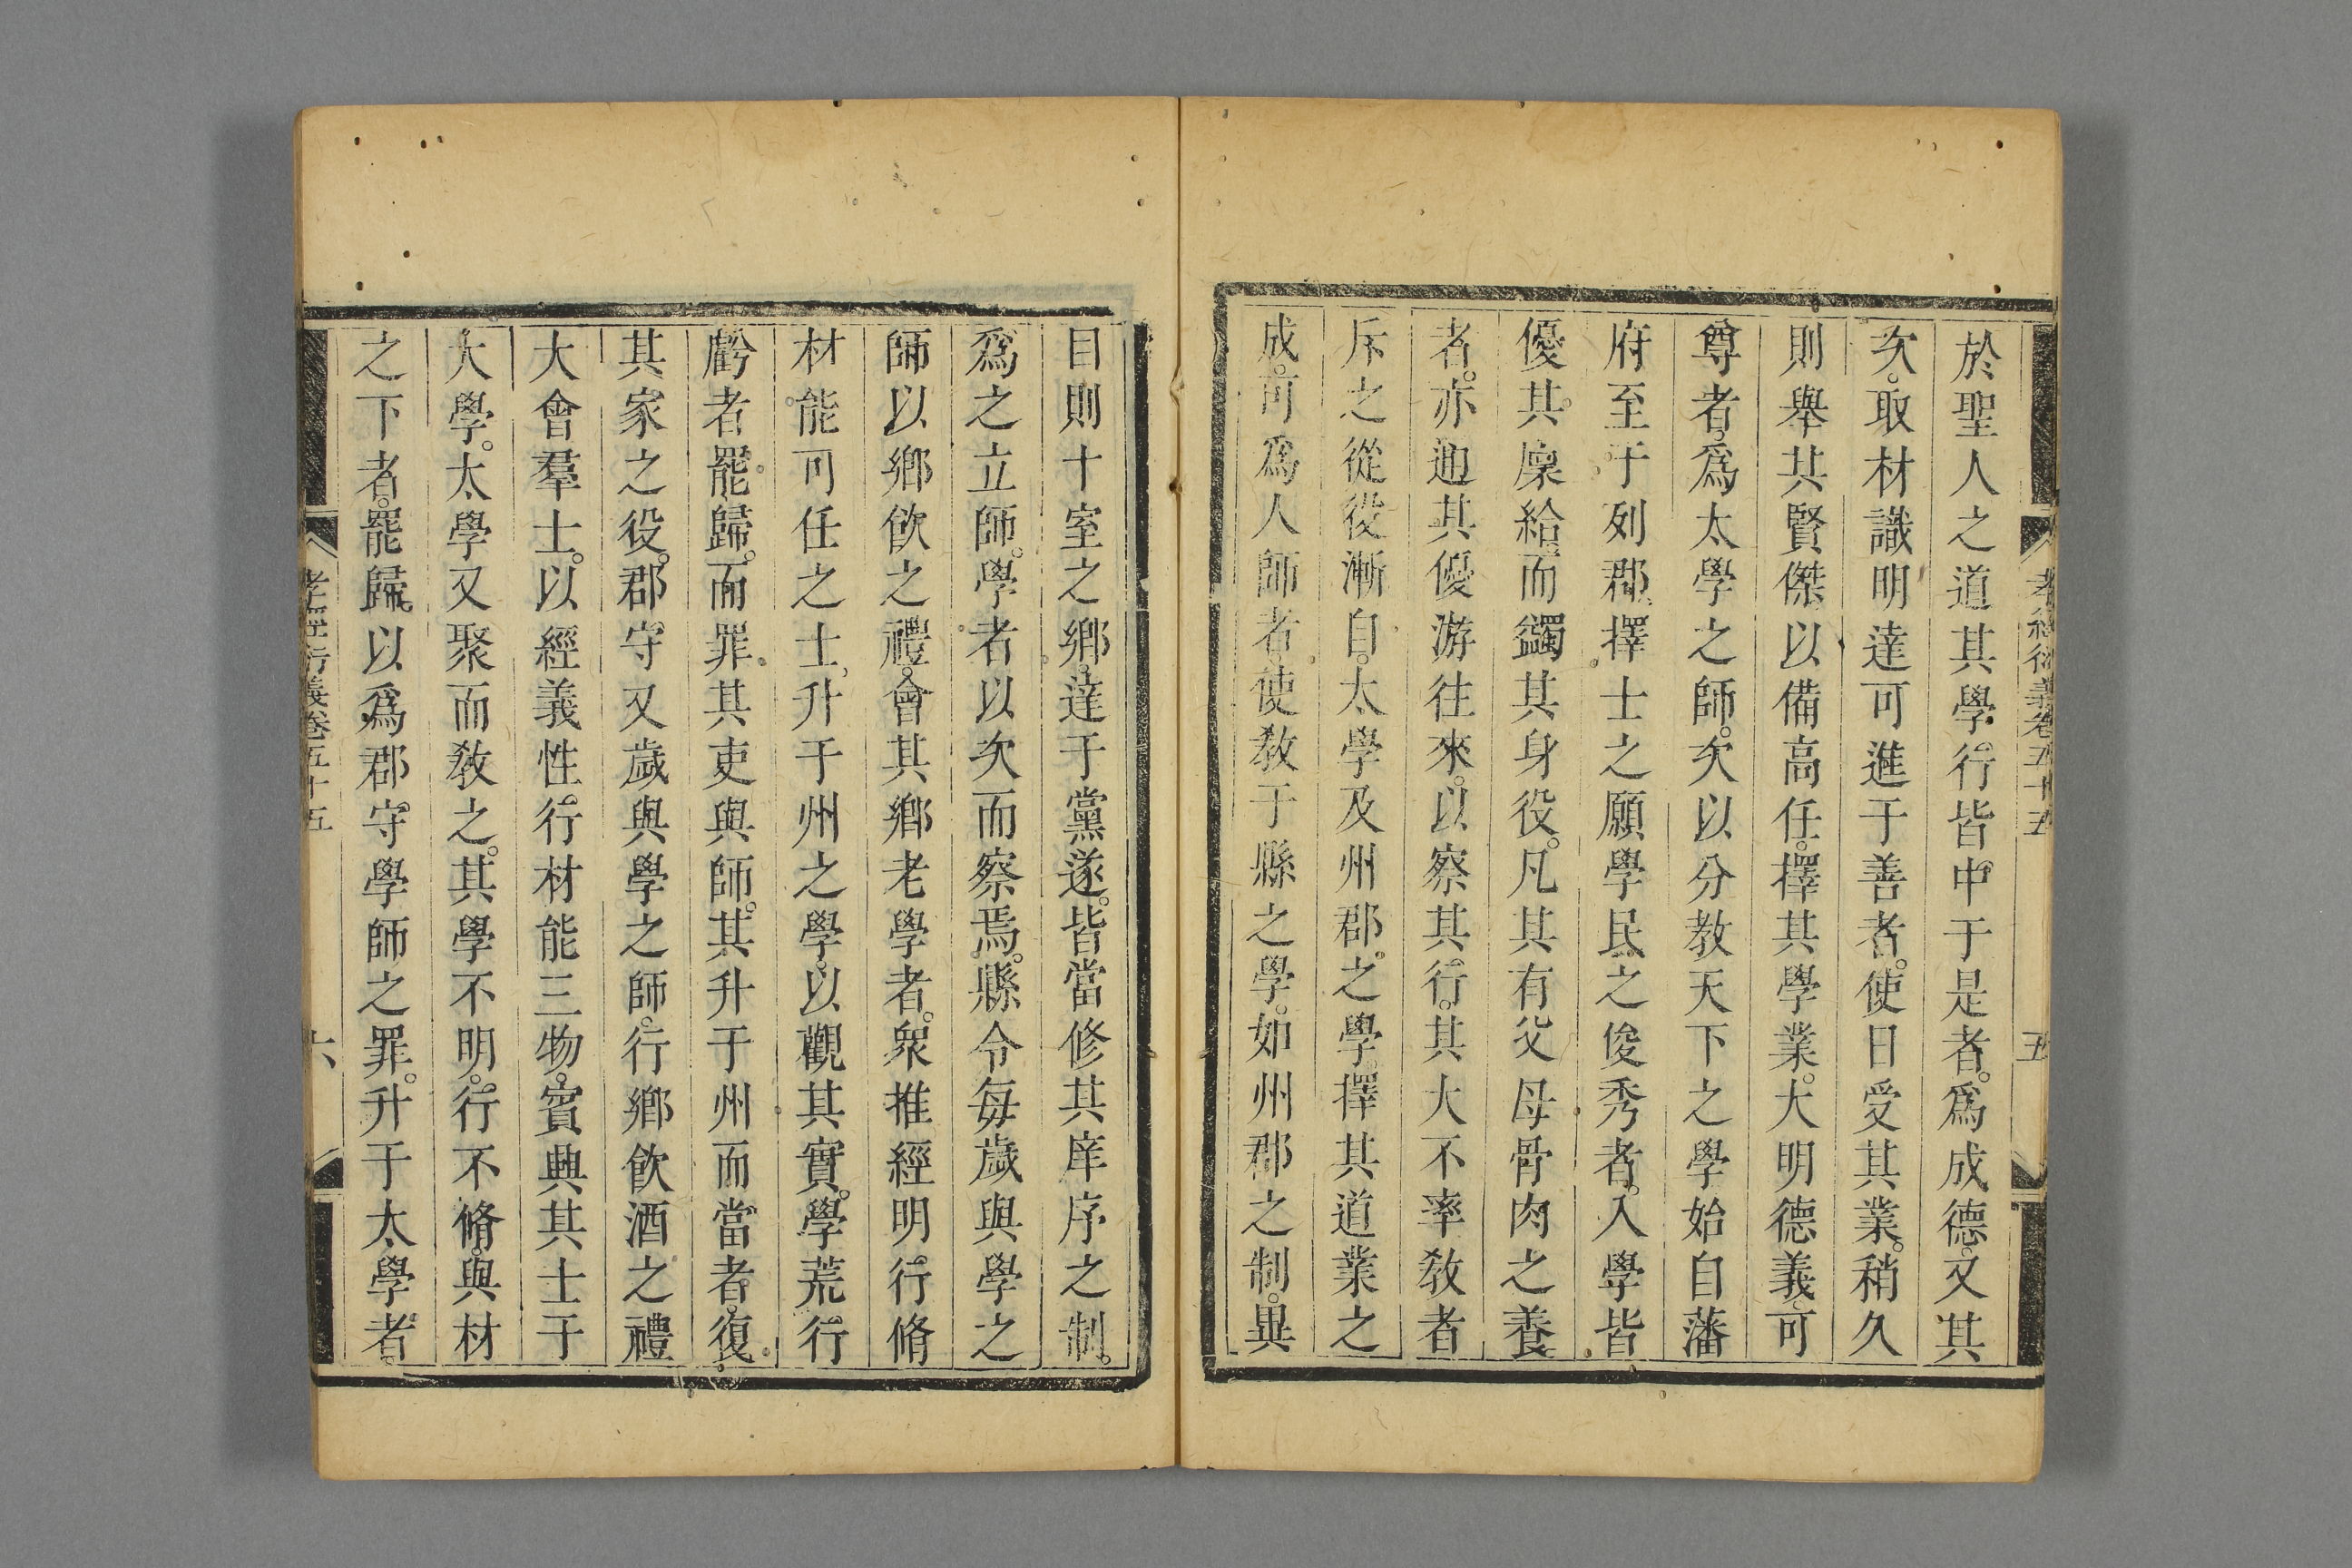 孝經衍義卷五十五　五
於聖人之道其學行皆中于是者。爲成德。又其
次。取材識明達可進于善者。使日受其業。稍久
則舉其賢傑以備高任。擇其學業。大明德義。可
尊者。爲太學之師。次以分教天下之學始自藩
府至于列郡。擇士之願學民之俊秀者。入學皆
優其廩給而蠲其身役。凡其有父母骨肉之養
者。亦通其優游往來。以察其行。其大不率敎者
斥之從役漸自。太學及州郡。之學。擇其道業之
成。可爲人師者。使敎于縣之學。如州郡之制。異
目則十室之鄉。達于黨遂。皆當修其庠序之制。
爲之立師。學者以次而察焉。縣令每歲與學之
師以鄉飲之禮。會其鄉老學者。衆推經明行脩
材能可任之士。升于州之學。以觀其實。學荒行
虧者罷歸。而罪其吏與師。其升于州而當者。復
其家之役。郡守又歲與學之師。行鄉飲酒之禮
大會羣士。以經義性行材能三物。賓興其士于
大學。太學又聚而敎之。其學不明。行不脩。與材
之下者。罷歸。以爲郡守學師之罪。升于太學者。
孝經衍義卷五十五　六